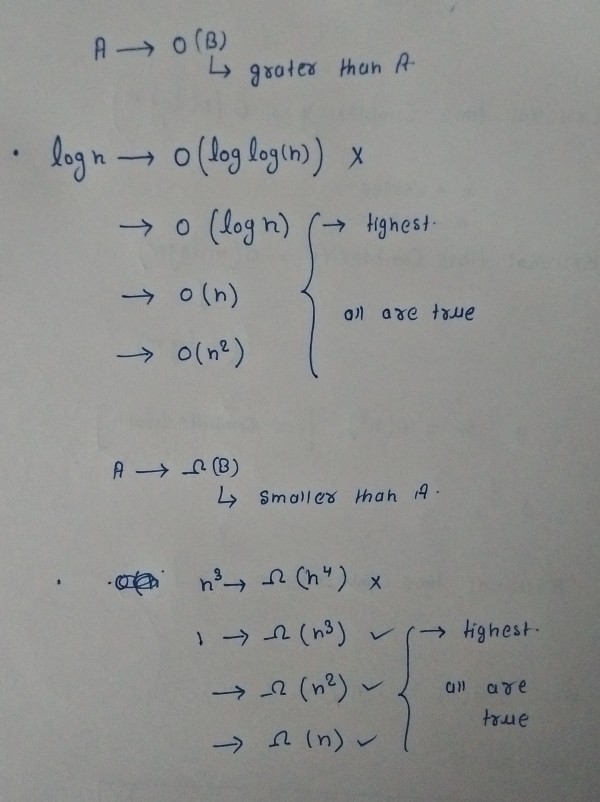 A → O(B)
↳ grater than A.
• log n → O(log log(n)) ×
→ O (log n) → tighest.
→ O(n)
all are true
→ O(n²)
A → Ω(B)
↳ smaller than A.
• n³ → Ω(n⁴) ×
→ Ω(n³) ✓ → tighest.
→ Ω(n²) ✓ all are
true
→ Ω(n) ✓